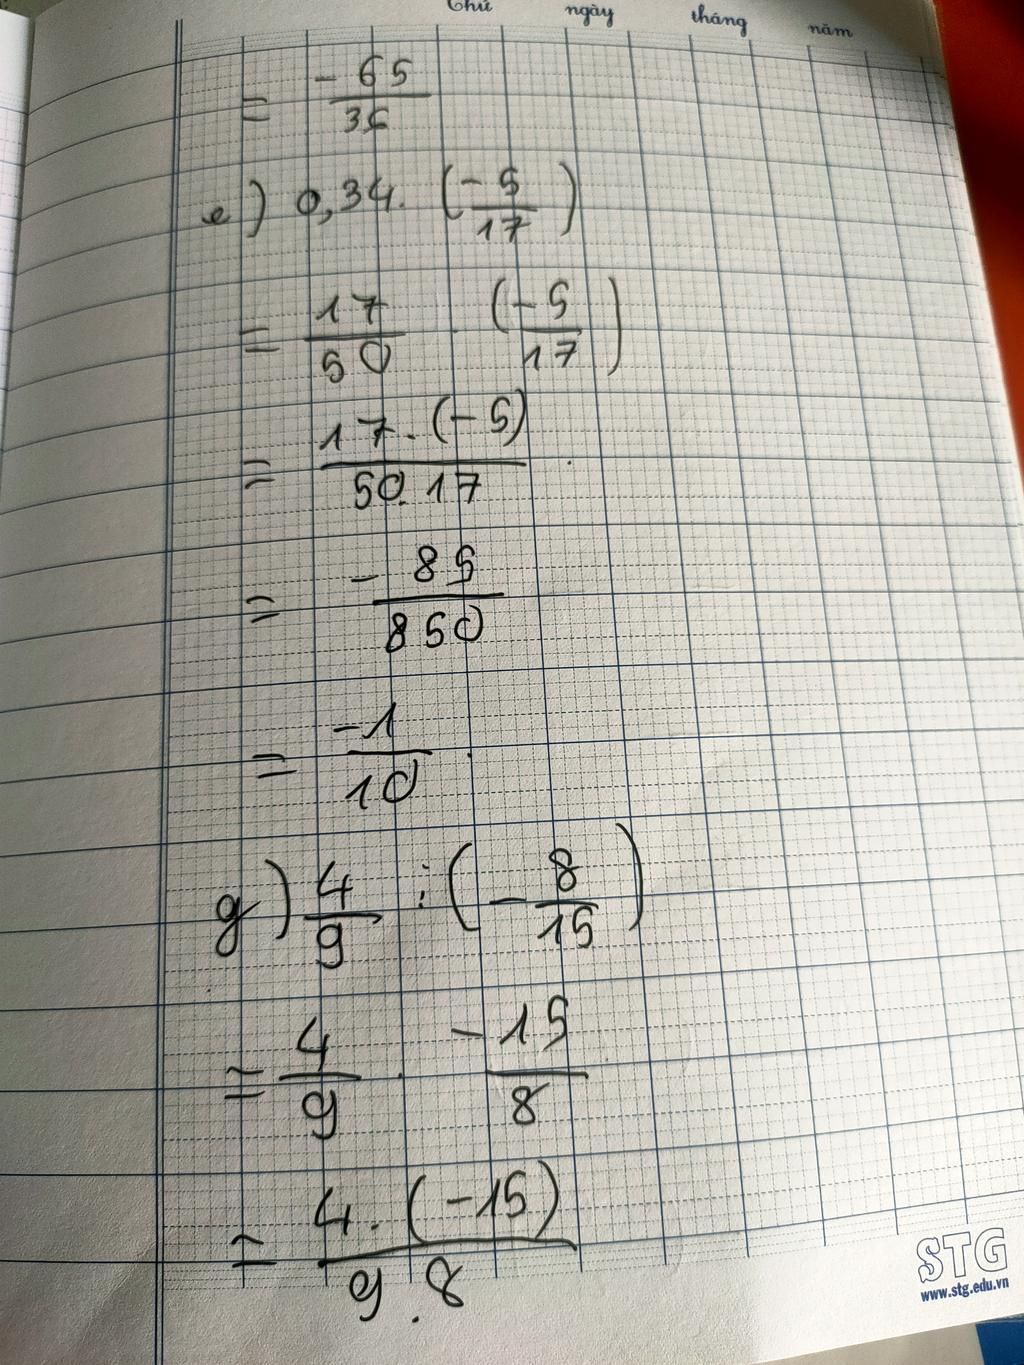 Thứ ngày tháng năm
= -65/36
e) 0,34. (-5/17)
= 17/50 . (-5/17)
= 17.(-5)/50.17
= -85/850
= -1/10
g) 4/9 : (-8/15)
= 4/9 . -15/8
= 4.(-15)/9.8
STG
www.stg.edu.vn